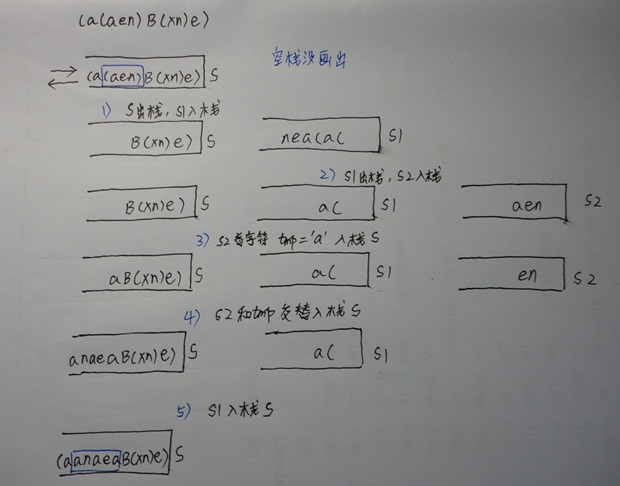 (a(aen)B(xn)e)
空栈没画出
(a(aen)B(xn)e) S
1) S出栈，S1入栈
B(xn)e) S nea(a( S1
2) S1出栈，S2入栈
B(xn)e) S a( S1 aen S2
3) S2首字符 tmp='a' 入栈S
aB(xn)e) S a( S1 en S2
4) S2和tmp交替入栈S
anaeaB(xn)e) S a( S1
5) S1入栈S
(aanaeaB(xn)e) S